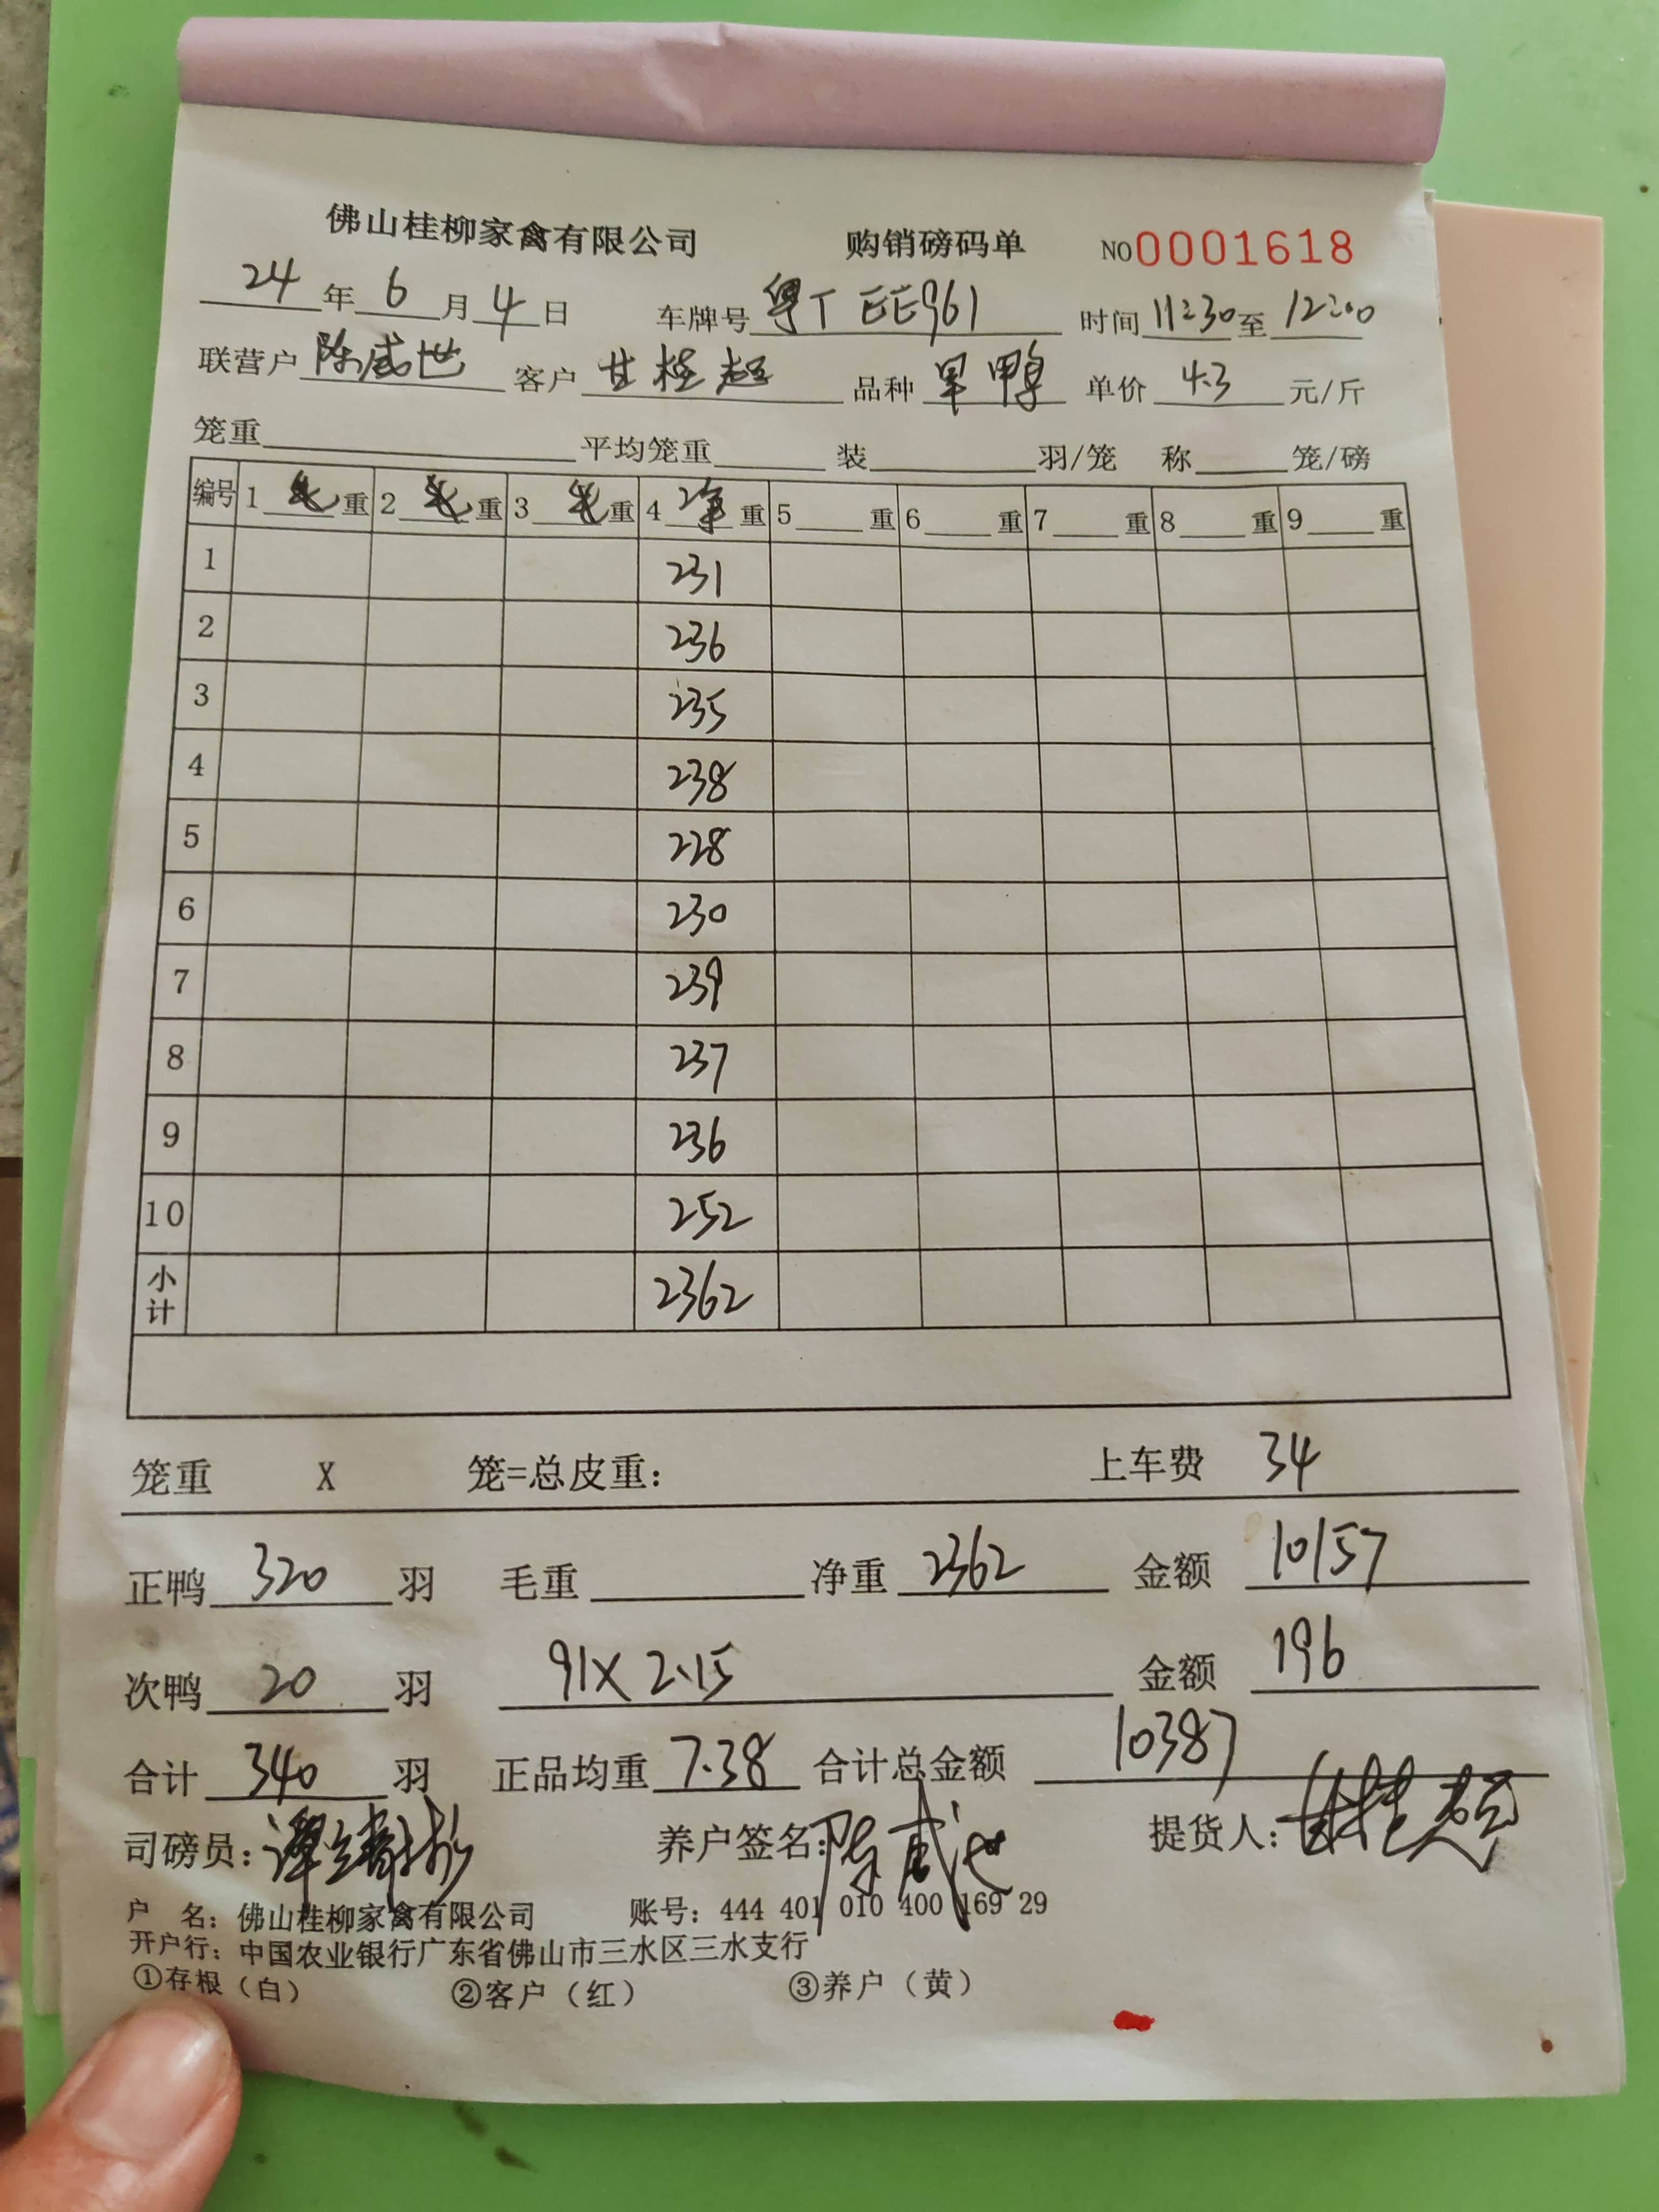 佛山桂柳家禽有限公司 购销磅码单 NO0001618
24年6月4日 车牌号 粤T EE961 时间 11:30至12:00
联营户 陈威世 客户 甘桂超 品种 旱鸭 单价 4.3 元/斤
笼重 平均笼重 装 羽/笼 称 笼/磅
编号 1 毛重 2 毛重 3 毛重 4 净重 5 重 6 重 7 重 8 重 9 重
1 231
2 236
3 235
4 238
5 228
6 230
7 239
8 237
9 236
10 252
小计 2362
笼重 X 笼=总皮重: 上车费 34
正鸭 320 羽 毛重 净重 2362 金额 10157
次鸭 20 羽 91X2.15 金额 196
合计 340 羽 正品均重 7.38 合计总金额 10387
司磅员: 养户签名: 陈威世 提货人: 甘桂超
户 名: 佛山桂柳家禽有限公司 账号: 444 401 010 400 169 29
开户行: 中国农业银行广东省佛山市三水区三水支行
①存根（白） ②客户（红） ③养户（黄）